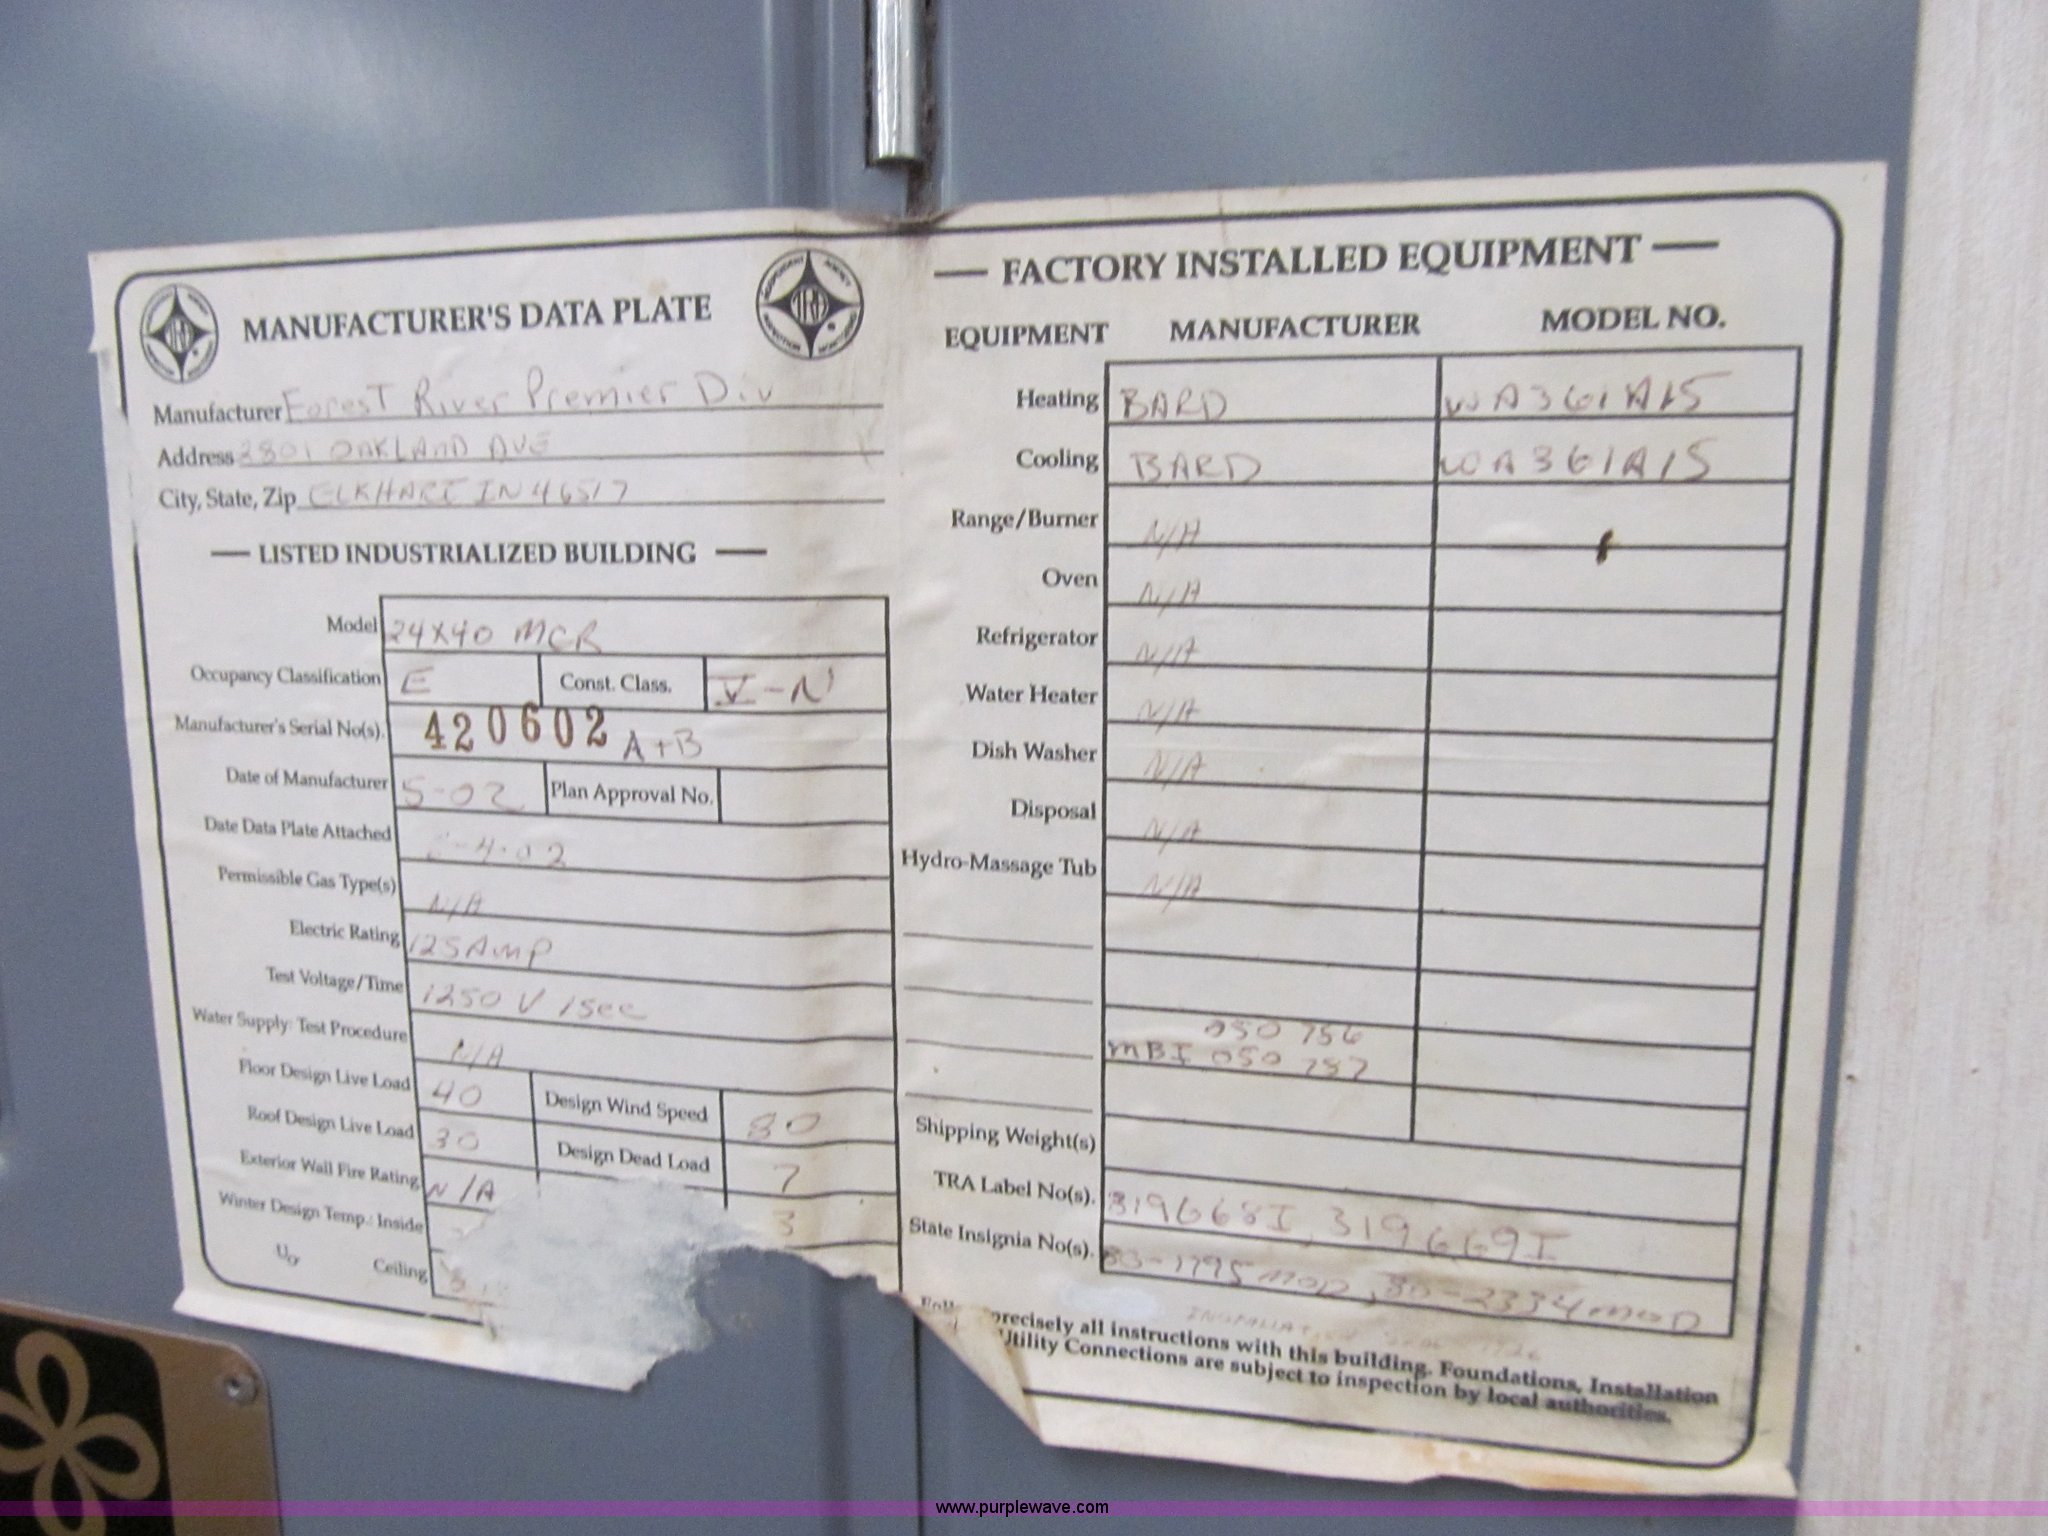 MANUFACTURER'S DATA PLATE
Manufacturer Forest River Premier Div
Address 2801 OAKLAND AVE
City, State, Zip ELKHART IN 46517
— LISTED INDUSTRIALIZED BUILDING —
Model 24X40 MCR
Occupancy Classification E Const. Class. V-N
Manufacturer's Serial No(s). 420602 A+B
Date of Manufacturer 5-02 Plan Approval No.
Date Data Plate Attached -4-02
Permissible Gas Type(s) N/A
Electric Rating 125 Amp
Test Voltage/Time 1250 V 1Sec
Water Supply: Test Procedure N/A
Floor Design Live Load 40 Design Wind Speed 80
Roof Design Live Load 30 Design Dead Load 7
Exterior Wall Fire Rating N/A
Winter Design Temp.: Inside 3
Uo Ceiling
— FACTORY INSTALLED EQUIPMENT —
EQUIPMENT MANUFACTURER MODEL NO.
Heating BARD WA361A15
Cooling BARD WA361A15
Range/Burner N/A
Oven N/A
Refrigerator N/A
Water Heater N/A
Dish Washer N/A
Disposal N/A
Hydro-Massage Tub N/A
050 756
MBI 050 757
Shipping Weight(s)
TRA Label No(s). 319668I, 319669I
State Insignia No(s). 80-2334 MOD
precisely all instructions with this building. Foundations, Installation
Utility Connections are subject to inspection by local authorities.
www.purplewave.com